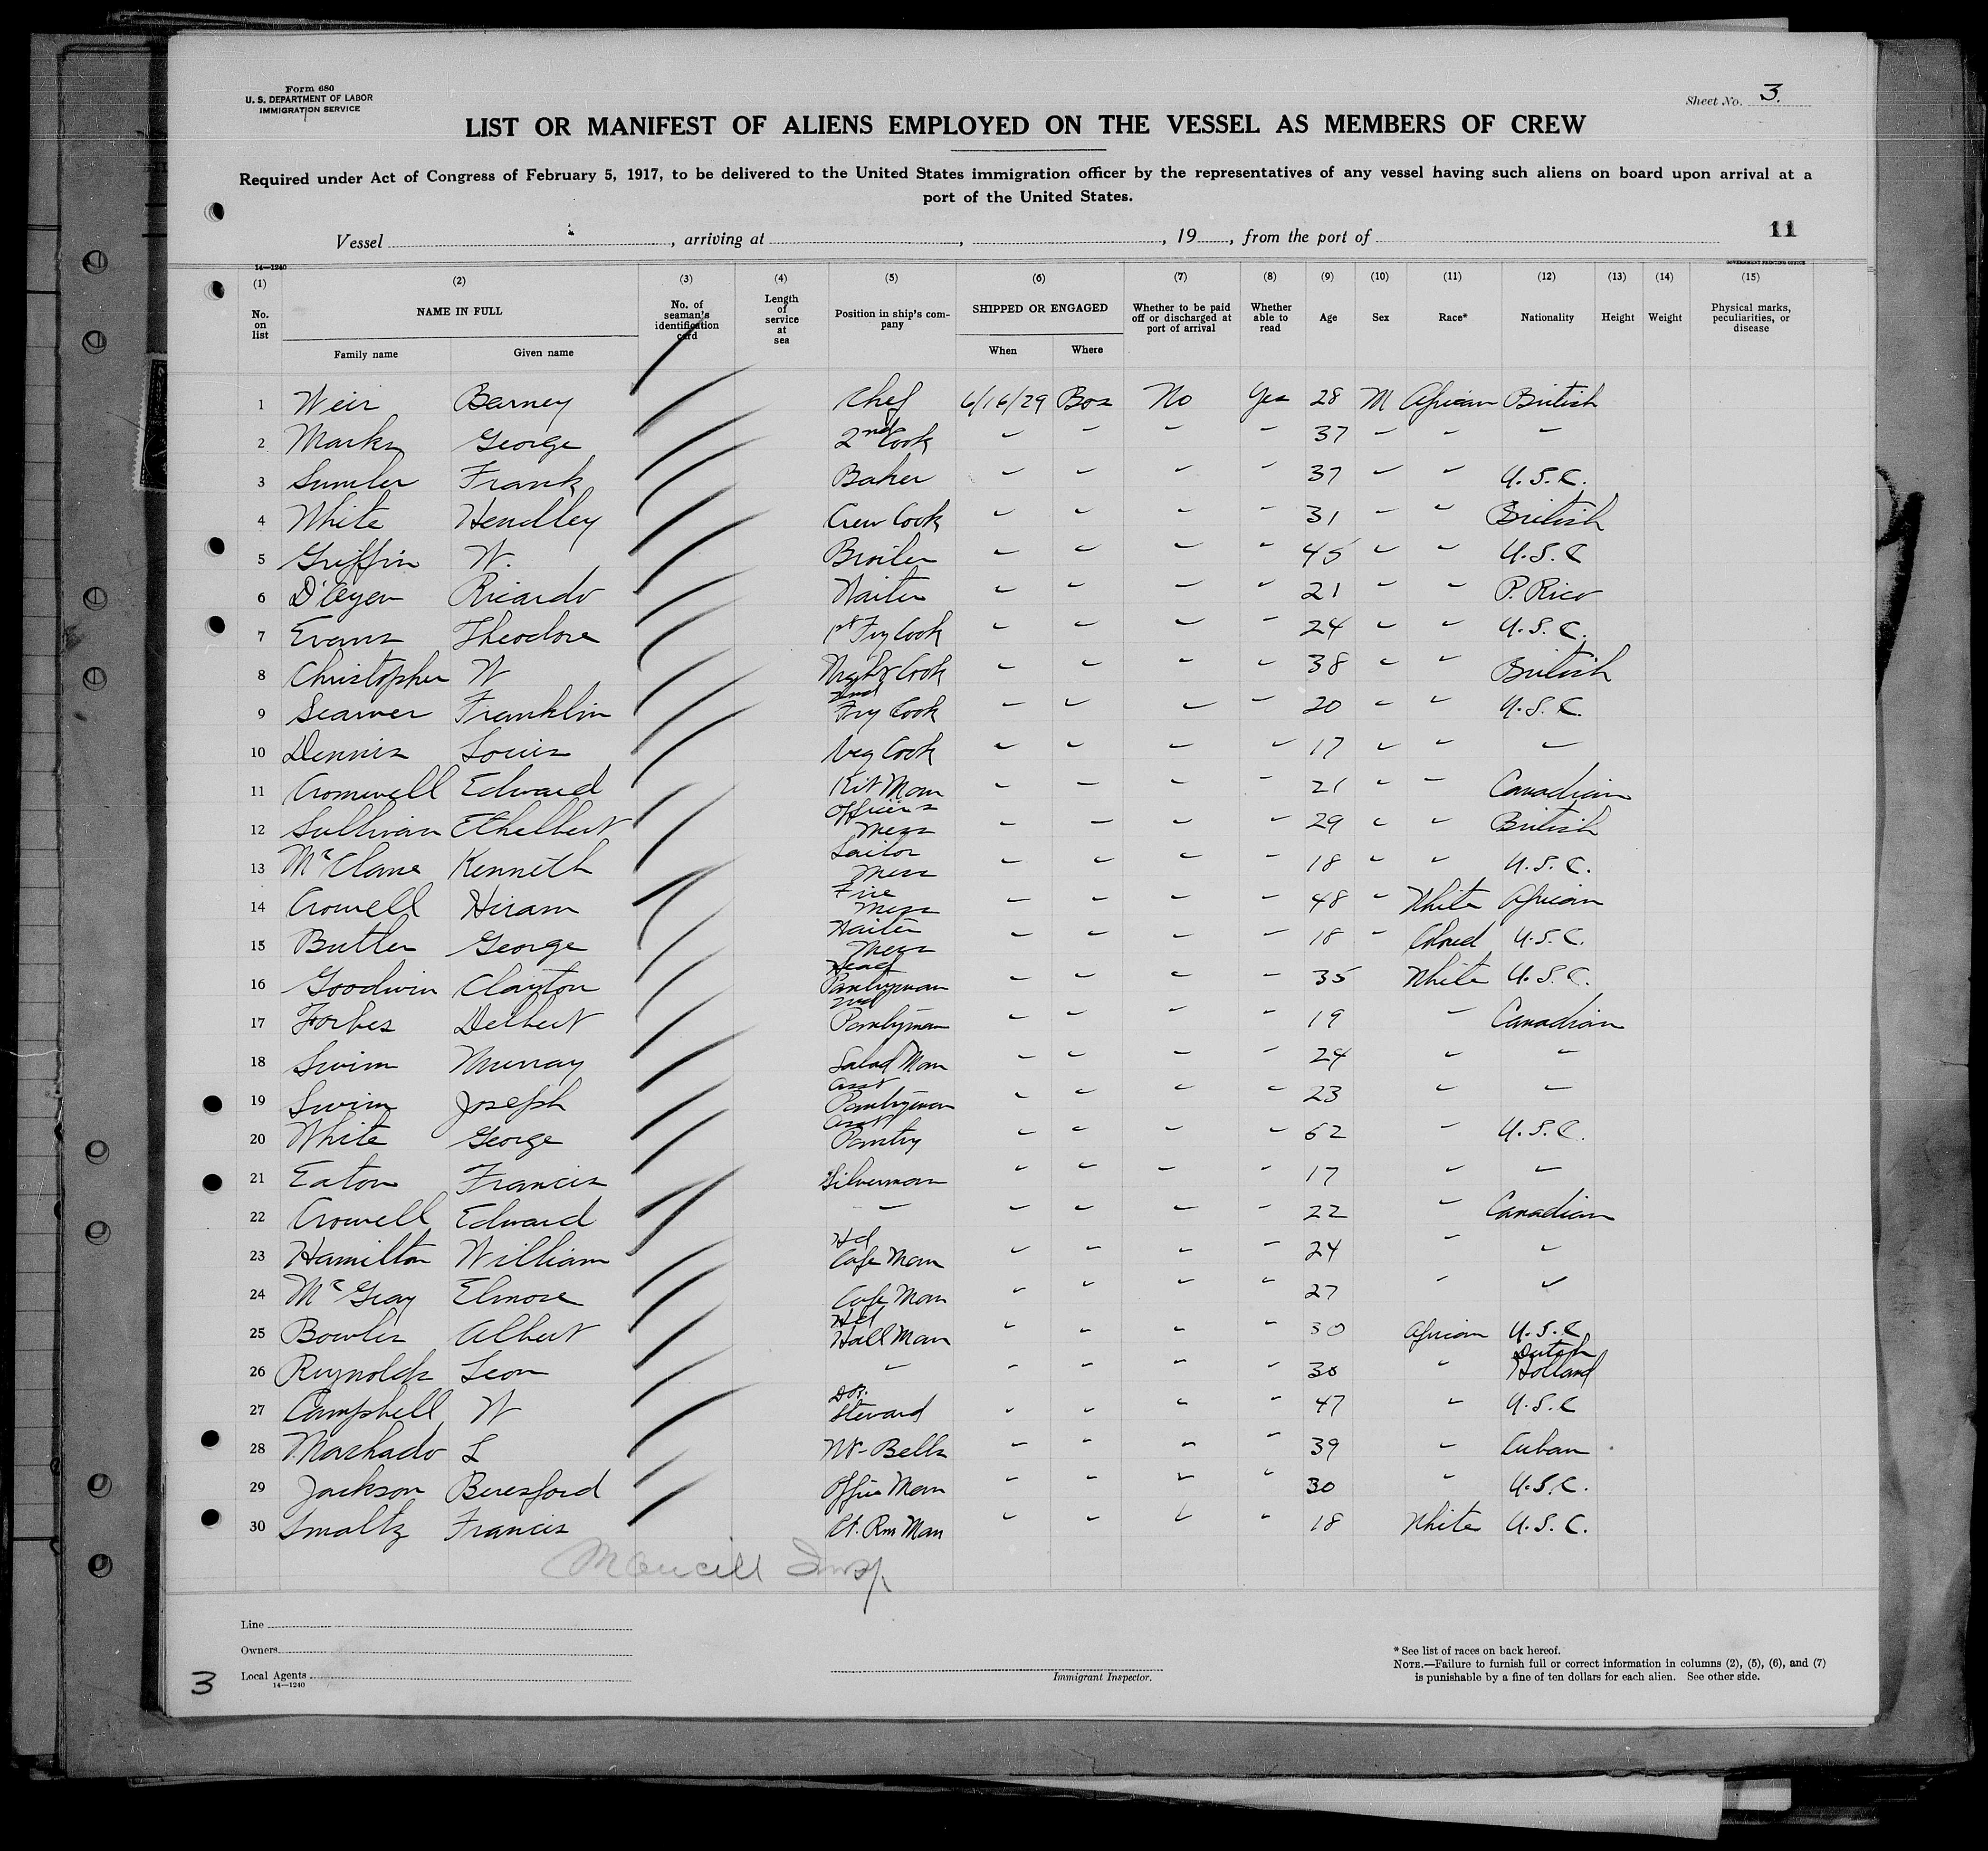 Form 680
U. S. DEPARTMENT OF LABOR
IMMIGRATION SERVICE
Sheet No. 3.
LIST OR MANIFEST OF ALIENS EMPLOYED ON THE VESSEL AS MEMBERS OF CREW
Required under Act of Congress of February 5, 1917, to be delivered to the United States immigration officer by the representatives of any vessel having such aliens on board upon arrival at a
port of the United States.
Vessel , arriving at , , 19 , from the port of
11
14—1240 GOVERNMENT PRINTING OFFICE
(1) (2) (3) (4) (5) (6) (7) (8) (9) (10) (11) (12) (13) (14) (15)
No. on list NAME IN FULL No. of seaman's identification card Length of service at sea Position in ship's company SHIPPED OR ENGAGED Whether to be paid off or discharged at port of arrival Whether able to read Age Sex Race* Nationality Height Weight Physical marks, peculiarities, or disease
Family name Given name When Where
1 Weir Barney Chef 6/16/29 Bos No Yes 28 M African British
2 Marks George 2nd Cook " " " " 37 " " "
3 Sumler Frank Baker " " " " 37 " " U.S.C.
4 White Hendley Crew Cook " " " " 31 " " British
5 Griffin W. Broiler " " " " 45 " " U.S.C
6 Ricardo Waiter " " " " 21 " " P. Rico
7 Evans Theodore 1st Fry Cook " " " " 24 " " U.S.C.
8 Christopher W Night Cook " " " " 38 " " British
9 Seamer Franklin 2nd Fry Cook " " " " 20 " " U.S.C.
10 Dennis Louis Veg Cook " " " " 17 " " "
11 Cromwell Edward Kit Man " " " " 21 " " Canadian
12 Sullivan Ethelbert Officers Mess " " " " 29 " " British
13 McClane Kenneth Sailor Mess " " " " 18 " " U.S.C.
14 Crowell Hiram Fire Mess " " " " 48 " White African
15 Butler George Waiter Mess " " " " 18 " Colored U.S.C.
16 Goodwin Clayton Head Pantryman " " " " 35 White U.S.C.
17 Forbes Delbert 2nd Pantryman " " " " 19 " Canadian
18 Swim Murray Salad Man " " " " 24 " "
19 Swim Joseph Asst Pantryman " " " " 23 " "
20 White George Asst Pantry " " " " 62 " U.S.C.
21 Eaton Francis Silverman " " " " 17 " "
22 Crowell Edward " " " " " 22 " Canadian
23 Hamilton William Hd Cafe Man " " " " 24 " "
24 McGray Elmore Cafe Man " " " " 27 " "
25 Bowler Albert Hd Hall Man " " " " 30 African U.S.C
26 Reynolds Leon " " " " " 30 " Dutch Holland
27 Campbell W Steward " " " " 47 " U.S.C
28 Machado L Nt-Bells " " " " 39 " Cuban
29 Jackson Beresford Office Man " " " " 30 " U.S.C.
30 Smaltz Francis St. Rm Man " " " " 18 White U.S.C.
Insp
Line
Owners
Local Agents
14—1240
Immigrant Inspector.
* See list of races on back hereof.
NOTE.—Failure to furnish full or correct information in columns (2), (5), (6), and (7)
is punishable by a fine of ten dollars for each alien. See other side.
3